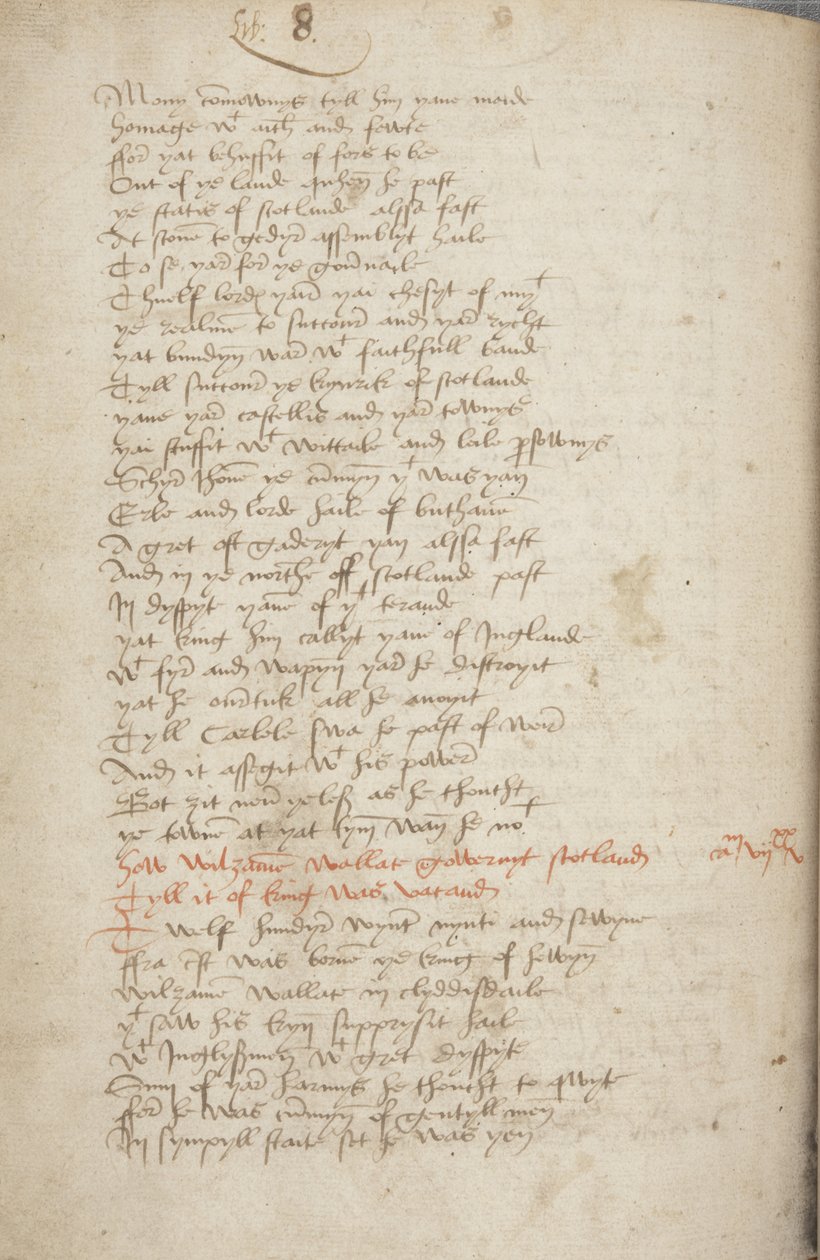 Lib: 8.
Mony comownys tyll him yane maide
homage wt aith and fewte
ffor yat behuffit of fors to be
Out of ye lande quhen he past
ye statis of scotlande alssa fast
At scone to gedyr assemblyt haile
To se yar for ye gouernaile
Thuelf lordis yair yai chesyt of mycht
ye realme to succour and yar rycht
yat bundyn war wt faithfull bande
Tyll succour ye kynrik of scotlande
yane yar castellis and yar townys
yai stuffit wt wittaile and leile personnys
Schyr Jhone ye cumyn yt was yan
Erle and lorde haile of buchane
A gret ost gaderyt yan alssa fast
And in ye northe off scotlande past
In dyspyte yane of yt terande
yat king him callyt yane of Inglande
wt fyr and wapyn yar he distroyit
yat he ourtuk all he anoyit
Tyll Carlele swa he past of weir
And it assegit wt his power
Bot zit neuer ye less as he thoucht
ye towne at yat tym wan he nocht
how wilzame wallace gowernyt scotland
Tyll it of king was vacand
Twelf hundyr wynter nynti and sewyne
ffra crist was borne ye king of hewyn
wilzame wallace in clyddisdaile
yt saw his kyn supprysit haile
wt Inglysmen wt gret dyspyte
Sum of yar harmys he thoucht to qwyte
ffor he was cumyn of gentyll men
In sympyll staite set he was yen